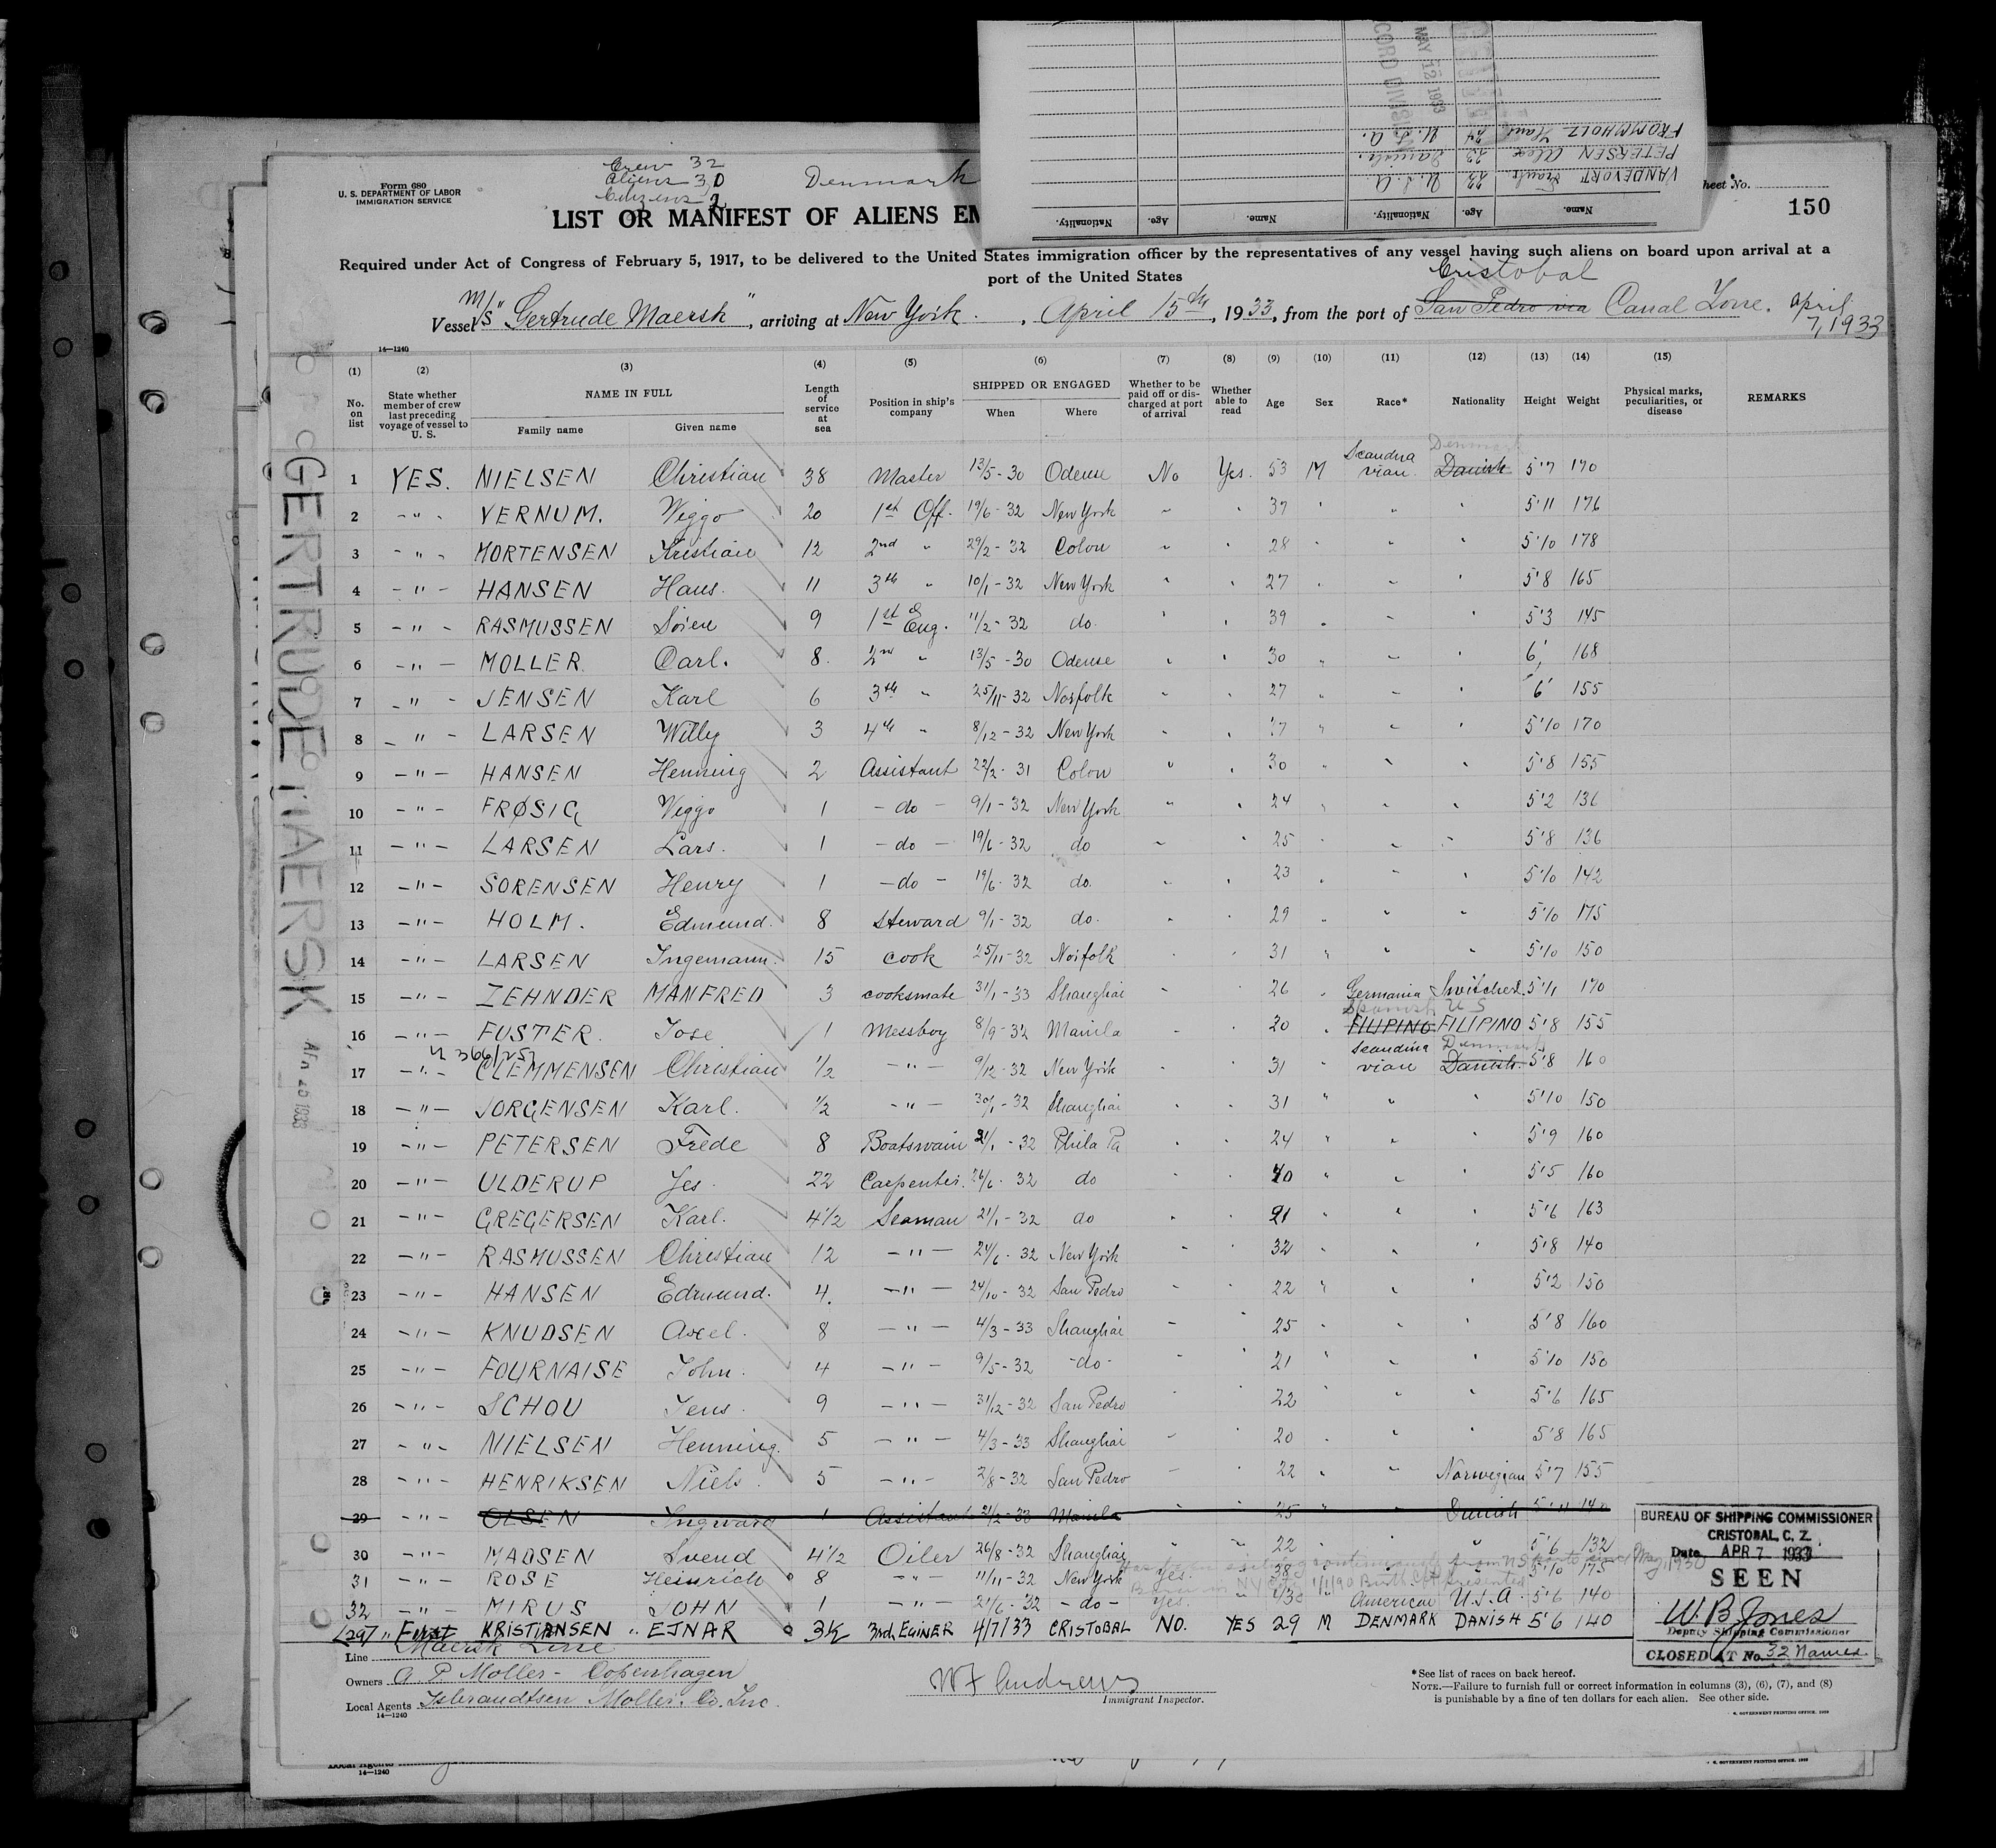 Crew 32
Aliens 30
Citizens 2
Denmark
Form 680
U. S. DEPARTMENT OF LABOR
IMMIGRATION SERVICE
VANDEVORT Frank 22 U.S.A.
PETERSEN 23 Danish.
FROMMHOLZ Hans 24 U.S.A.
Name. Age. Nationality. Name. Age. Nationality.
MAY 12 1933
Sheet No.
150
LIST OR MANIFEST OF ALIENS EM
Required under Act of Congress of February 5, 1917, to be delivered to the United States immigration officer by the representatives of any vessel having such aliens on board upon arrival at a
port of the United States
Cristobal
Vessel M/S "Gertrude Maersk", arriving at New York., April 15th, 1933, from the port of San Pedro via Canal Zone. April 7, 1933
14—1240
(1) (2) (3) (4) (5) (6) (7) (8) (9) (10) (11) (12) (13) (14) (15)
No. on list
State whether member of crew last preceding voyage of vessel to U. S.
NAME IN FULL
Family name Given name
Length of service at sea
Position in ship's company
SHIPPED OR ENGAGED
When Where
Whether to be paid off or discharged at port of arrival
Whether able to read
Age Sex Race* Nationality Height Weight
Physical marks, peculiarities, or disease
REMARKS
GERTRUDE MAERSK
1 YES. NIELSEN Christian 38 Master 13/5-30 Odense No Yes. 53 M Scandinavian Danish Denmark 5'7 170
2 - " - VERNUM. Viggo 20 1st Off. 19/6-32 New York " " 37 " " " 5'11 176
3 - " - MORTENSEN Kristian 12 2nd " 29/2-32 Colon " " 28 " " " 5'10 178
4 - " - HANSEN Hans. 11 3th " 10/1-32 New York " " 27 " " " 5'8 165
5 - " - RASMUSSEN Sören 9 1st Eng. 11/2-32 do. " " 39 " " " 5'3 145
6 - " - MOLLER. Carl. 8. 2nd " 13/5-30 Odense " " 30 " " " 6' 168
7 - " - JENSEN Karl 6 3th " 25/11-32 Norfolk " " 27 " " " 6' 155
8 - " - LARSEN Willy 3 4th " 8/12-32 New York " " " " " 5'10 170
9 - " - HANSEN Henning 2 Assistant 22/2-31 Colon " " 30 " " " 5'8 155
10 - " - FRØSIG Viggo 1 - do - 9/1-32 New York " " 24 " " " 5'2 136
11 - " - LARSEN Lars. 1 - do - 19/6-32 do " " 25 " " " 5'8 136
12 - " - SORENSEN Henry 1 - do - 19/6-32 do. " " 23 " " " 5'10 142
13 - " - HOLM. Edmund. 8 Steward 9/1-32 do. " " 29 " " " 5'10 175
14 - " - LARSEN Ingemann. 15 cook 25/11-32 Norfolk " " 31 " " " 5'10 150
15 - " - ZEHNDER MANFRED 3 cooksmate 31/1-33 Shanghai " " 26 " Germania Switched. 5'11 170
Spanish U S
16 - " - FUSTER. Jose 1 Messboy 8/9-32 Manila " " 20 " FILIPINO FILIPINO 5'8 155
17 - " - CLEMMENSEN Christian 1/2 - " - 9/12-32 New York " 31 " Scandinavian Danish. Denmark 5'8 160
18 - " - JORGENSEN Karl. 1/2 - " - 30/1-32 Shanghai " " 31 " " " 5'10 150
19 - " - PETERSEN Frede 8 Boatswain 21/1-32 Phila Pa " " 24 " " " 5'9 160
20 - " - ULDERUP Jes. 22 Carpenter. 26/6-32 do " " 40 " " " 5'5 160
21 - " - GREGERSEN Karl. 4 1/2 Seaman 21/1-32 do " " 21 " " " 5'6 163
22 - " - RASMUSSEN Christian 12 - " - 24/6-32 New York " " 32 " " " 5'8 140
23 - " - HANSEN Edmund. 4. - " - 24/10-32 San Pedro " " 22 " " " 5'2 150
24 - " - KNUDSEN Axel. 8 - " - 4/3-33 Shanghai " " 25 " " " 5'8 160
25 - " - FOURNAISE John. 4 - " - 9/5-32 -do- " " 21 " " " 5'10 150
26 - " - SCHOU Jens. 9 - " - 31/12-32 San Pedro " " 22 " " " 5'6 165
27 - " - NIELSEN Henning. 5 - " - 4/3-33 Shanghai " " 20 " " " 5'8 165
28 - " - HENRIKSEN Niels. 5 - " - 2/8-32 San Pedro " " 22 " " Norwegian 5'7 155
29 - " - OLSEN Ingward 1 Assistant 21/2-33 Manila " " 25 " " Danish 5'11 140
30 - " - MADSEN Svend 4 1/2 Oiler 26/8-32 Shanghai " " 22 " " " 5'6 132
31 - " - ROSE Heinrich 8 - " - 11/11-32 New York Yes. 38 " " " 5'10 175
32 - " - MIRUS JOHN 1 - " - 21/6-32 - do - Yes. " 30 " American U.S.A. 5'6 140
(29) " First KRISTIANSEN " EJNAR 3 1/2 3nd. EGINER 4/7/33 CRISTOBAL NO. YES 29 M DENMARK DANISH 5'6 140
Line Maersk Line
Owners A. P. Moller - Copenhagen
Local Agents Isbrandtsen Moller. Co. Inc.
14—1240
W F Andrews
Immigrant Inspector.
BUREAU OF SHIPPING COMMISSIONER
CRISTOBAL, C. Z.
Date APR 7 1933
SEEN
W. B. Jones
Deputy Shipping Commissioner
CLOSED AT No. 32 Names
*See list of races on back hereof.
NOTE.—Failure to furnish full or correct information in columns (3), (6), (7), and (8)
is punishable by a fine of ten dollars for each alien. See other side.
U. S. GOVERNMENT PRINTING OFFICE. 1929
14—1240